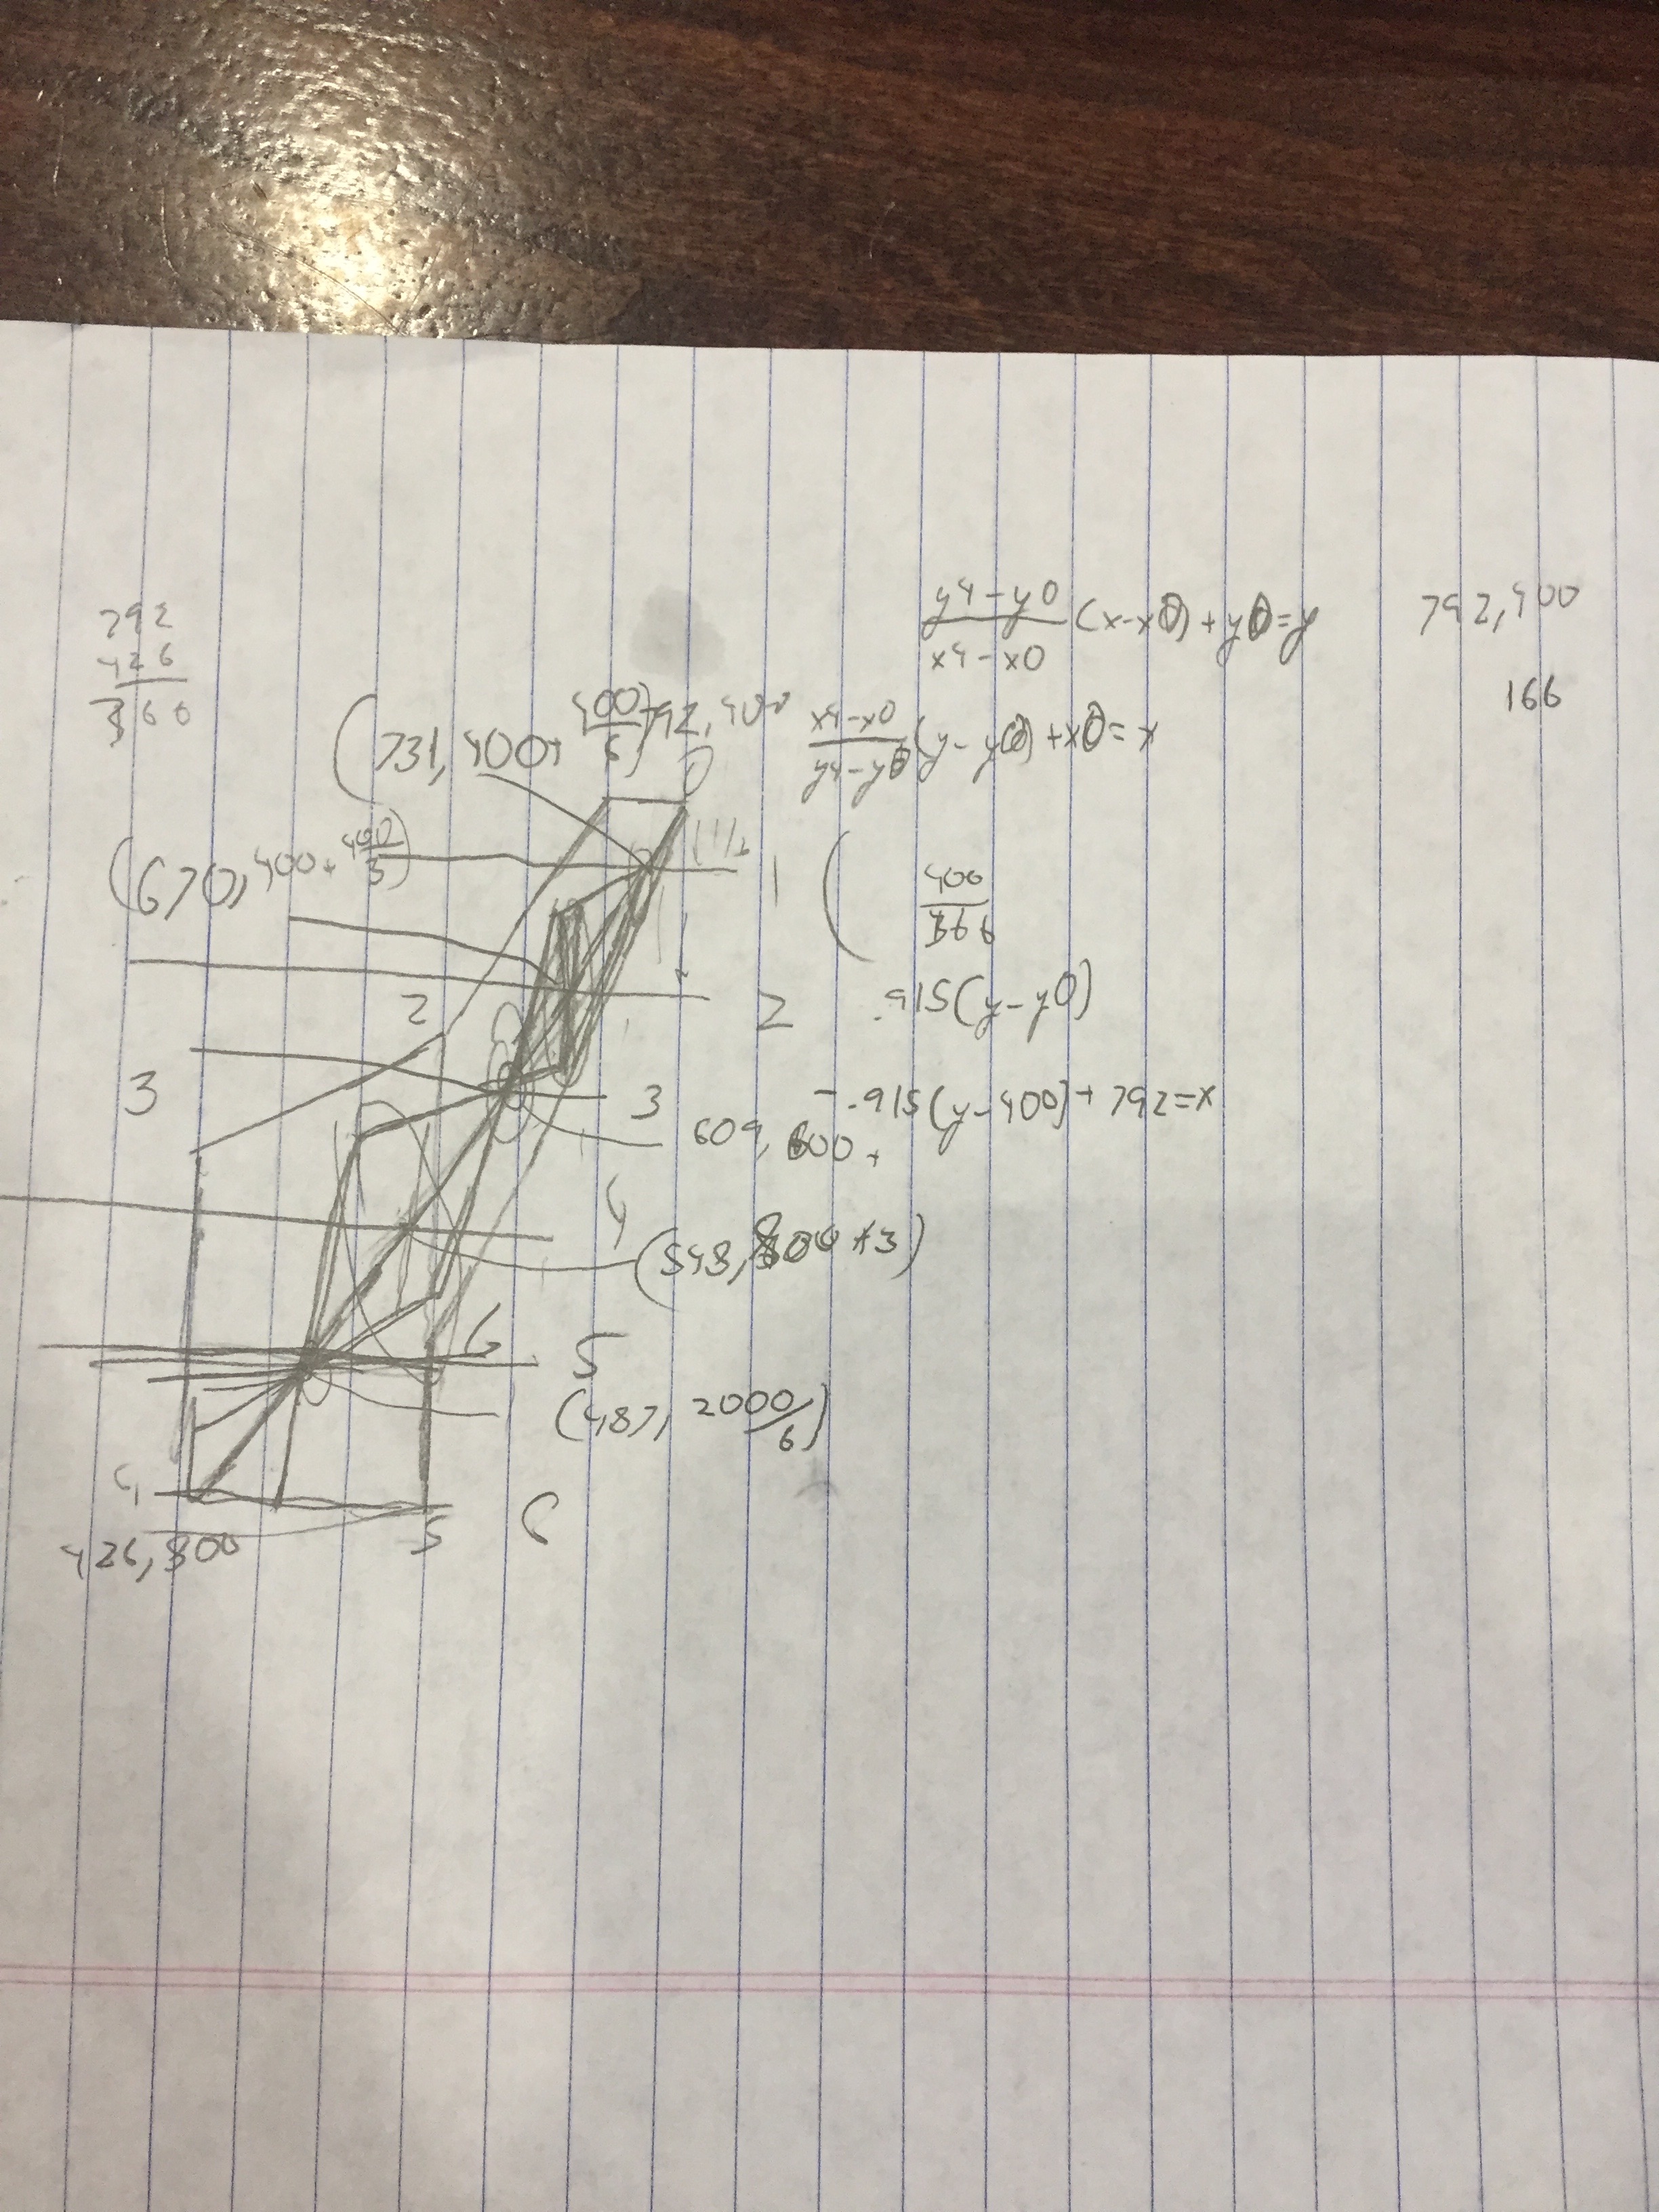 792
426
366
y4-y0/x4-x0 (x-x0)+y0=y
792,400
166
(731,400+400/6)
792,400
x4-x0/y4-y0 (y-y0)+x0=x
0
1
(670,400+400/3)
400/366
2
2
.915(y-y0)
3
3
-.915(y-400)+792=x
609,600
4
(548,800*3)
6
5
(487,2000/6)
4
426,800
5
6